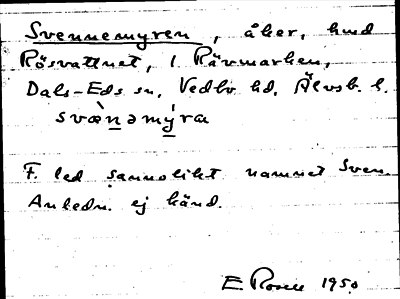 Svennemyren, åker, hmd
Rösvattnet, 1. Rävmarken,
Dals-Eds sn, Vedbo hd, Älvsb. l.
svæ̀nəmýra
F. led sannolikt namnet Sven.
Anledn. ej känd.
E Rosell 1950